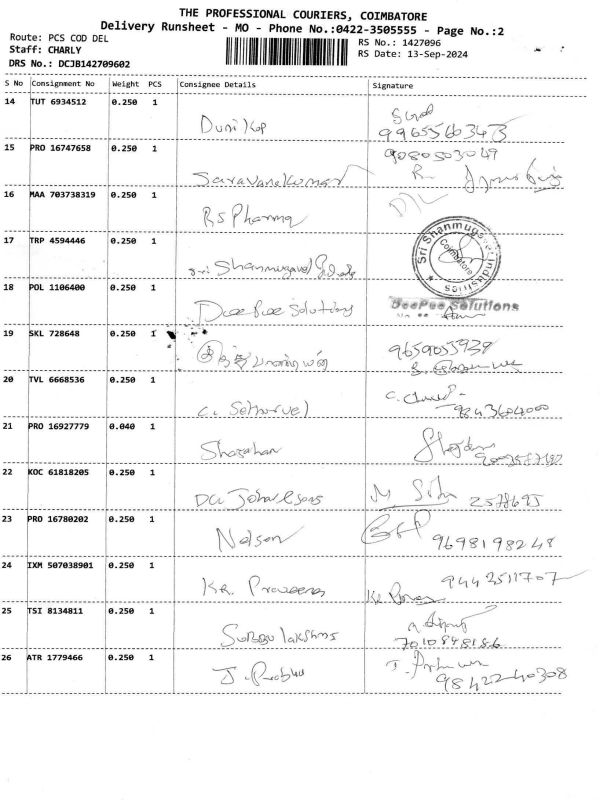 THE PROFESSIONAL COURIERS, COIMBATORE
Delivery Runsheet - MO - Phone No.:0422-3505555 - Page No.:2
Route: PCS COD DEL
Staff: CHARLY
DRS No.: DCJB142709602
RS No.: 1427096
RS Date: 13-Sep-2024
S No Consignment No Weight PCS Consignee Details Signature
14 TUT 6934512 0.250 1
9965560343
15 PRO 16747658 0.250 1 Saravanakumar
9080503049
16 MAA 703738319 0.250 1 RS Pharma
17 TRP 4594446 0.250 1 Sri Shanmugavel
Sri Shanmugavel Industries
Coimbatore
18 POL 1106400 0.250 1 Dee Pee Solutions
DeePee Solutions
19 SKL 728648 0.250 1
20 TVL 6668536 0.250 1 C. Sethuvel
9843604000
21 PRO 16927779 0.040 1 Shajahan
22 KOC 61818205 0.250 1
M. 2578695
23 PRO 16780202 0.250 1 Nelson
9698198248
24 IXM 507038901 0.250 1 KR. Praveena
9442511707
25 TSI 8134811 0.250 1
7010848186
26 ATR 1779466 0.250 1 J. Prabhu
9842240308